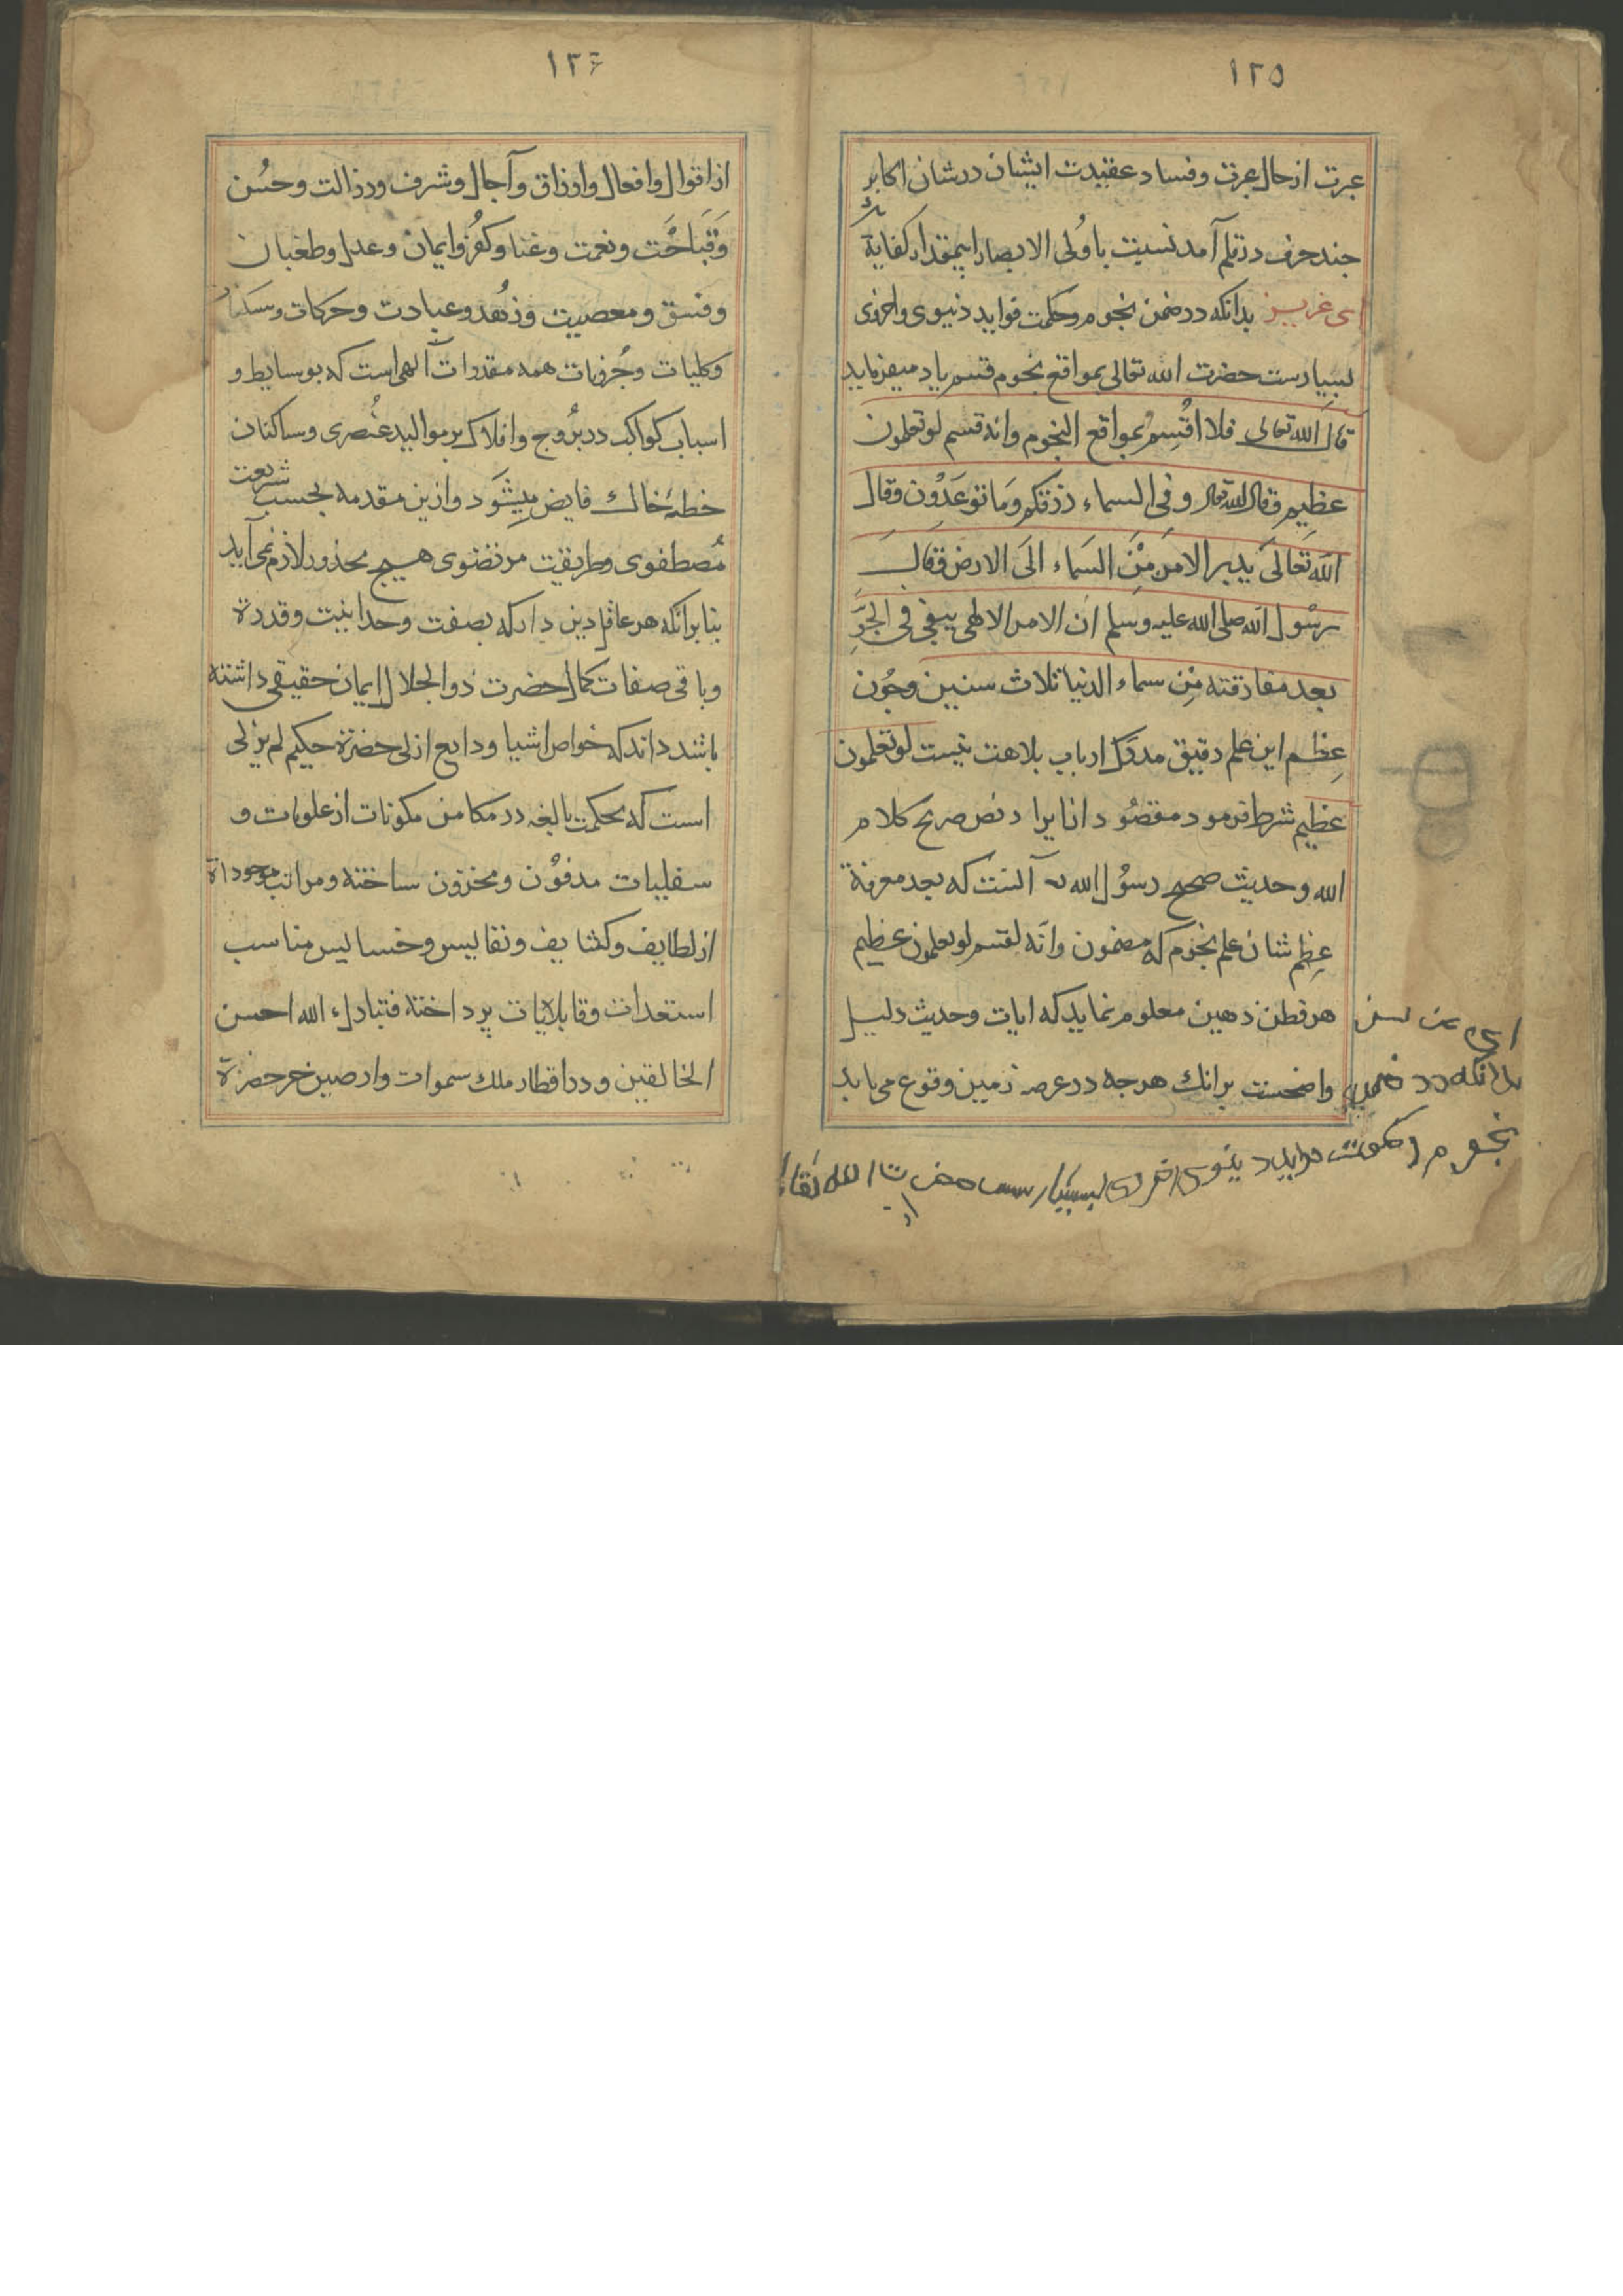 ۱۲۵
عبرت از حال عبرت وفساد عقیدت ایشان در شان اکابر
جند حرف در قلم آمد نسبت با ولی الابصار اینمقدار کفایة
ای عزیز بدانکه در ضمن نجوم وحکمت فواید دنیوی واخروی
بسیارست حضرت الله تعالی بمواقع نجوم قسم یاد میفرماید
قال الله تعالی فلا اُقْسِمُ بمواقع النجوم وانه قسم لو تعلمون
عظیم وقال الله تعالی وفی السماء رزقکم وَما توعَدُون وقال
الله تَعالَی یدبر الامرَ مِنَ السَماء الَی الارض وَقالَ
رسُول الله صلی الله علیه وسلم ان الامر الالهی یبقی فی الجَوِّ
بعد مفارقته مِن سماء الدنیا ثلاث سنین وچون
عِظم این علم دقیق مدرَک ارباب بلاهت نیست لو تعلمون
عظیم شرط فرمود مقصُود انا یراد نص صریح کلام
الله وحدیث صحیح رسُول الله آنست که بعد معرفة
عِظم شان علم نجوم که مضمون وانّه لقسم لو تعلمون عظیم
هر فطن ذهین معلوم نماید که ایات وحدیث دلیل
واضحست برانک هرجه در عرصه زمین وقوع می یابد
بدانکه در ضمن
نجوم
۱۲۶
از اقوال وافعال وارزاق وآجال وشرف ورذالت وحُسن
وَقَبَاحَت ونعمت وغنا وکفُر وایمان وعدل وطغیان
وفسق ومعصیت وزُهد وعبادت وحرکات وسکنات
وکلیات وجُزویات همه مقدرات الهی است که بوسایط و
اسباب کواکب در برُوج وافلاک بر موالید عُنصری وساکنان
خطهٔ خاک فایض میشَود وازین مقدمه بحسب شریعت
مُصطفوی وطریقت مرتضوی هیچ محذور لازم نمی آید
بنا برانکه هر عاقل دین دار که بصفت وحدانیت وقدرة
وباقی صفات کمال حضرت ذو الجلال ایمان حقیقی داشته
باشد داند که خواص اشیا ودایع ازلی حضرة حکیم لم یزلی
است که بحکمت بالغه در مکامن مکونات از علویات و
سفلیات مدفوُن ومخزون ساخته ومراتب موجوداة
از لطایف وکثایف ونفایس وخسایس مناسب
استعدات وقابلایات پرداخته فتبارک الله احسن
الخالقین ودر اقطار ملک سموات وارضین خر حضرة